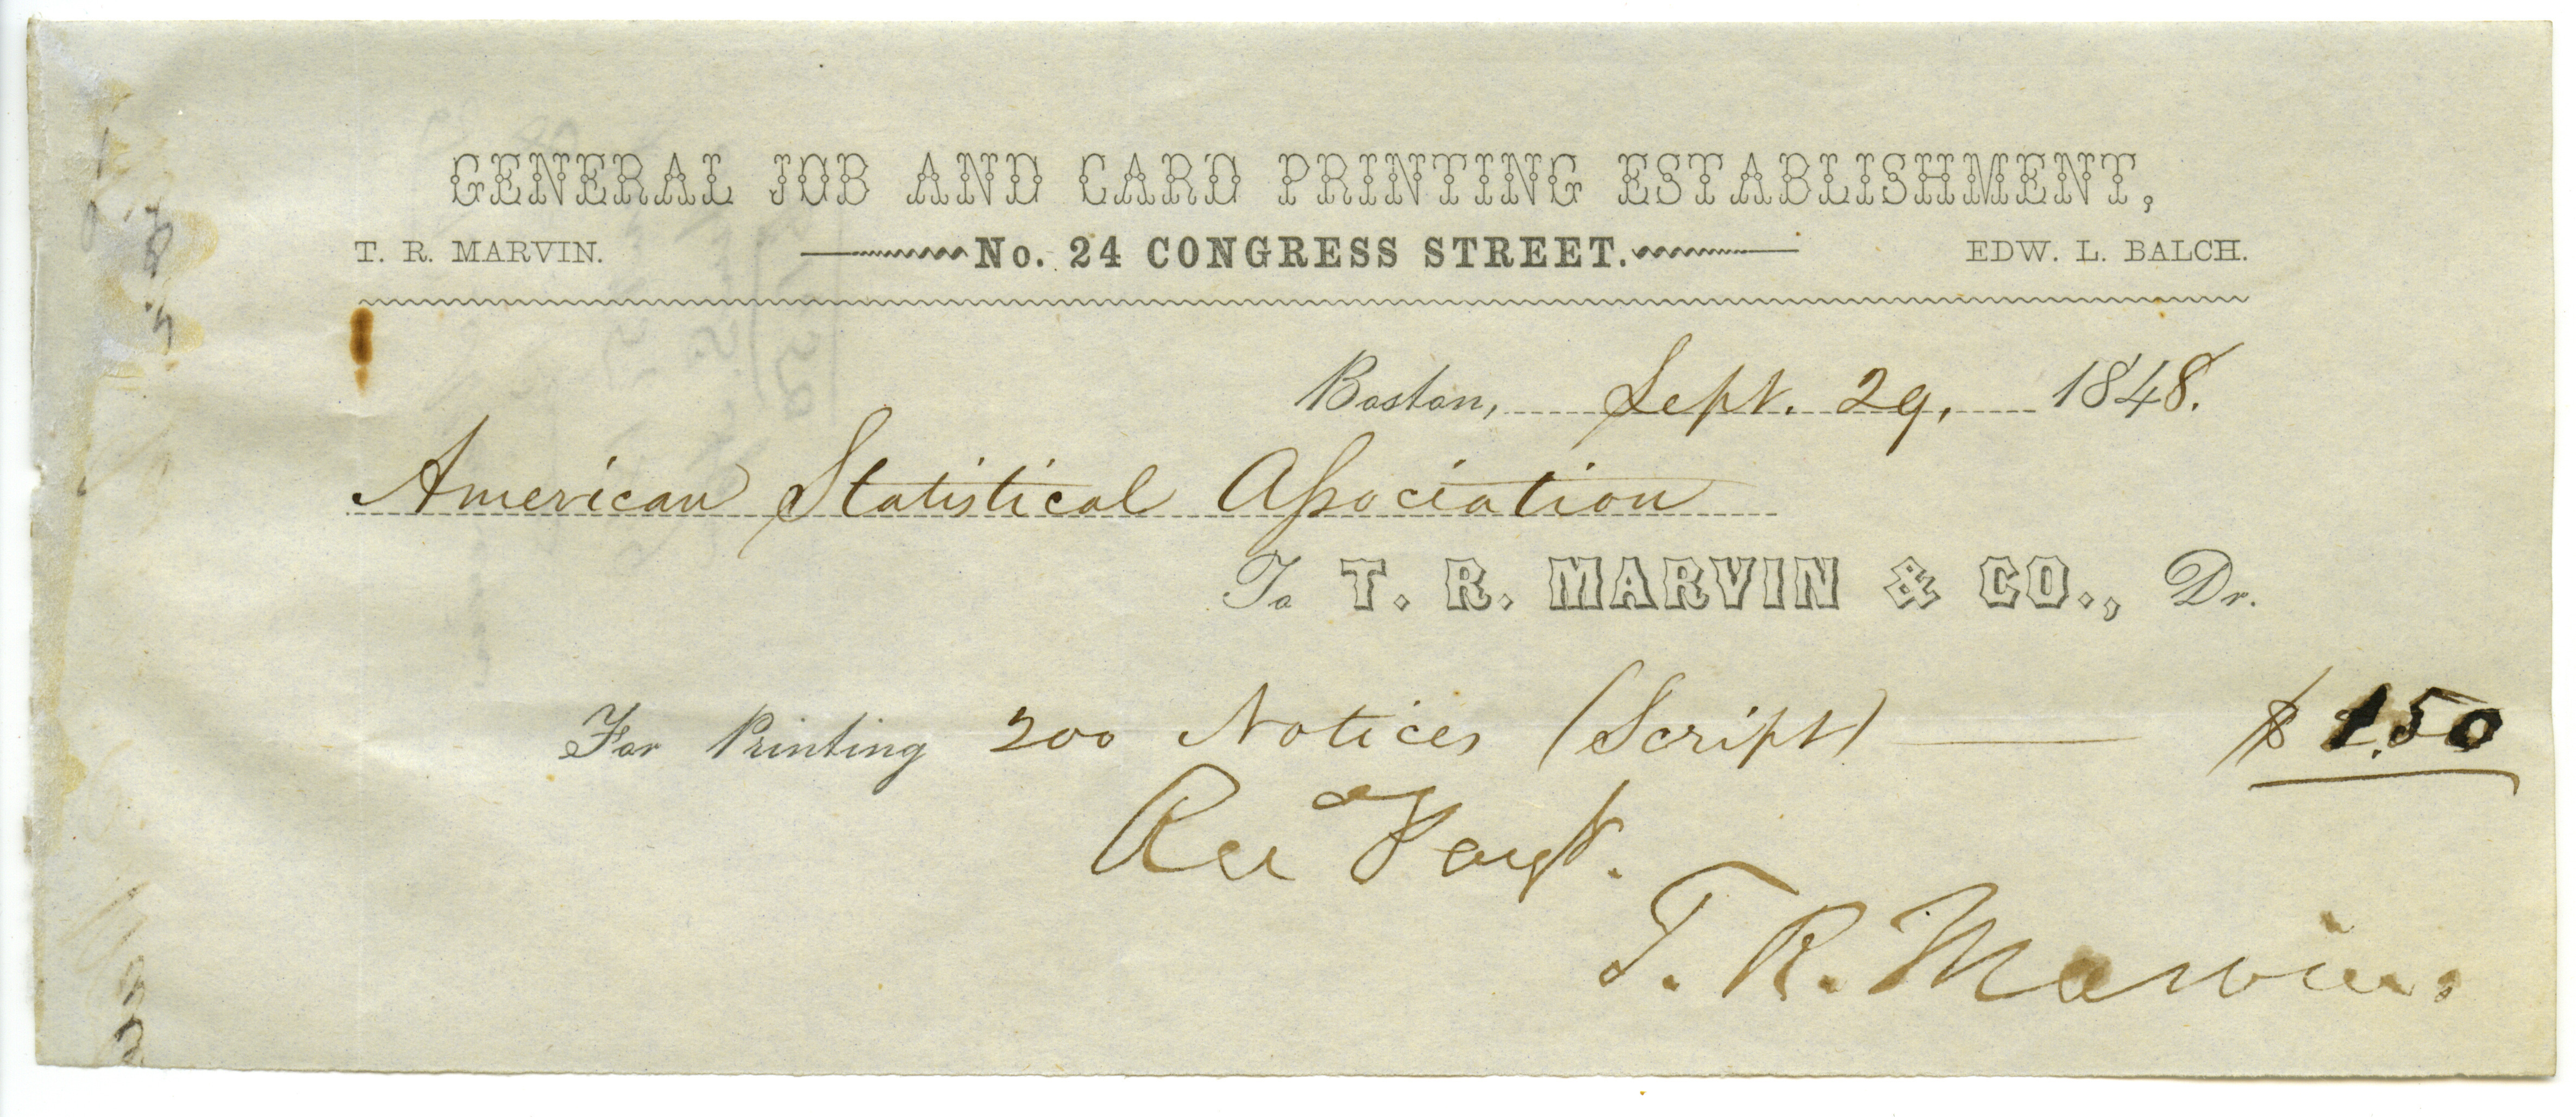 GENERAL JOB AND CARD PRINTING ESTABLISHMENT,
T. R. MARVIN. No. 24 CONGRESS STREET. EDW. L. BALCH.
Boston, Sept. 29, 1848.
American Statistical Association
To T. R. MARVIN & CO., Dr.
For Printing 200 Notices (Script) $ 1.50
Recd Payt.
T. R. Marvin.